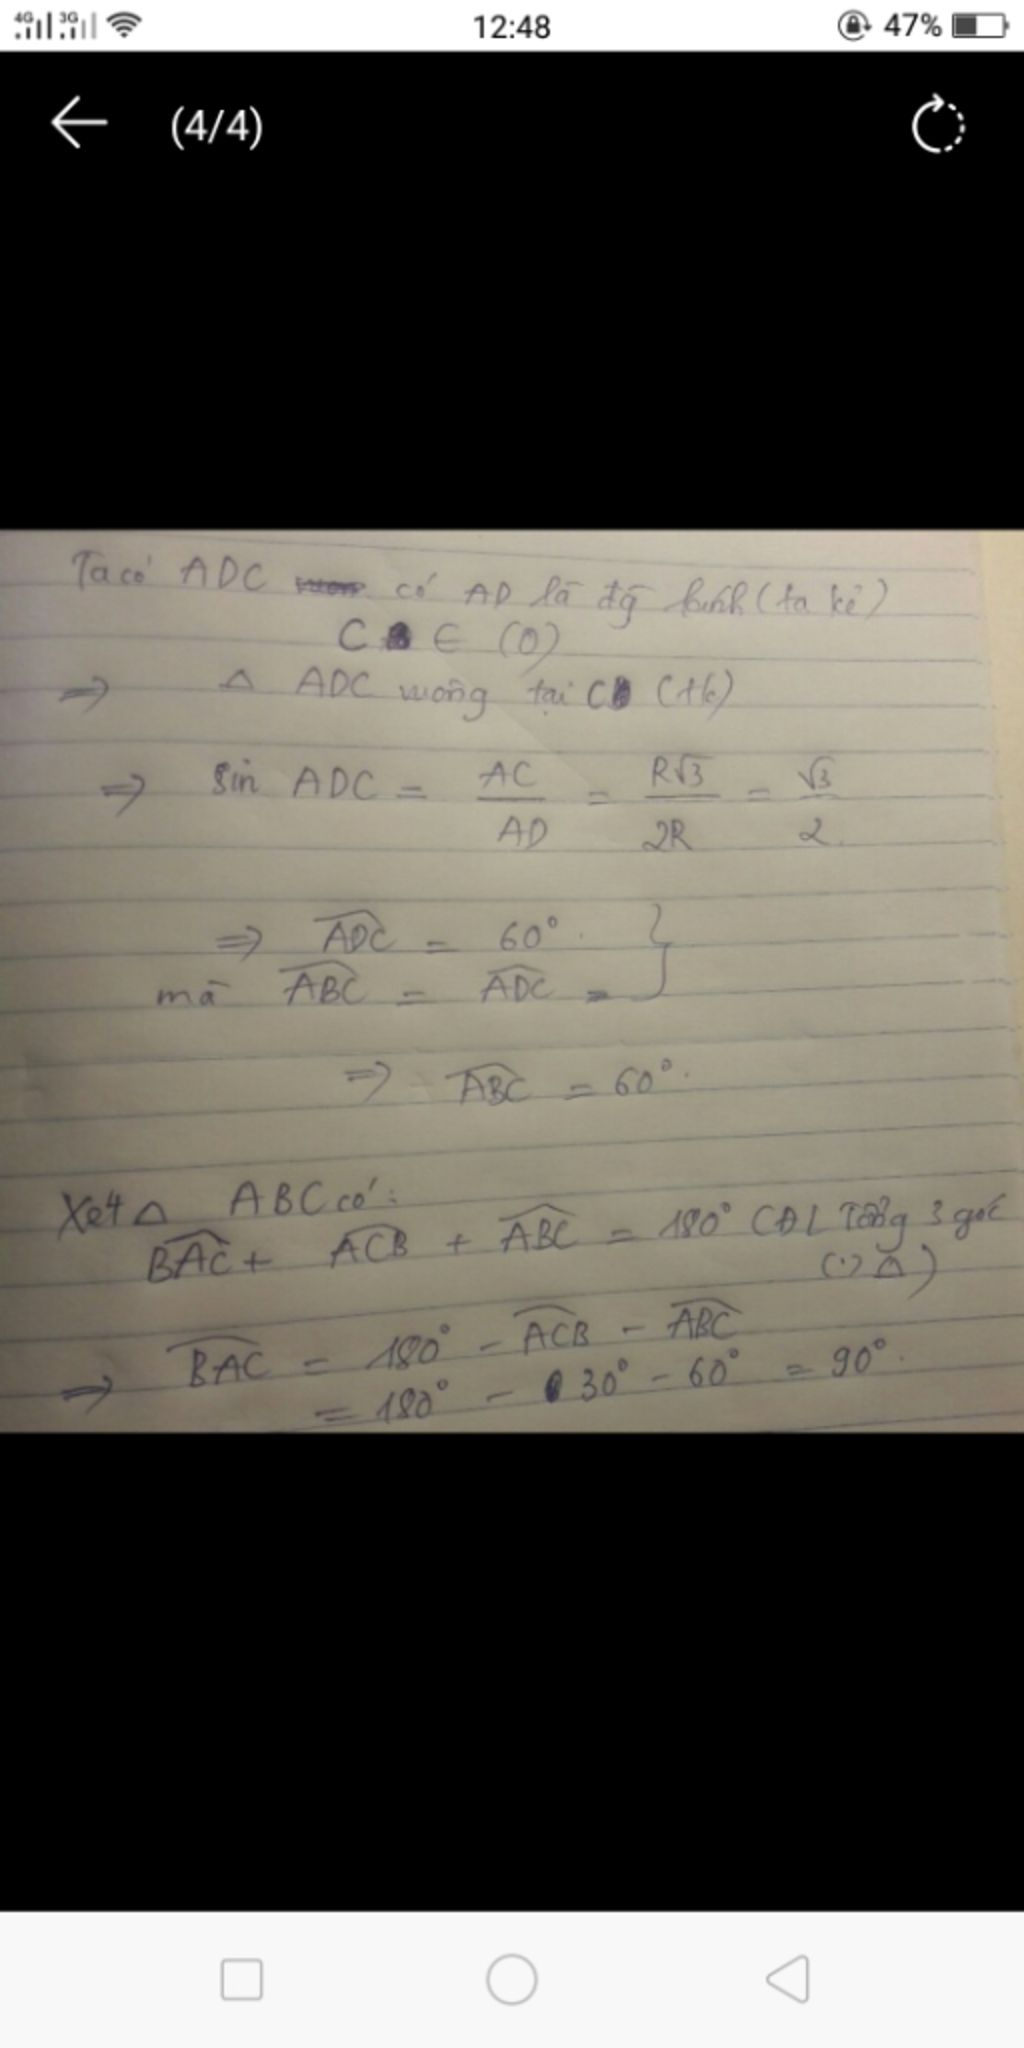 4G 3G 12:48 47%
(4/4)
Ta có ADC có AD là đg kính (ta kẻ)
C ∈ (O)
⇒ △ ADC vuông tại C (tk)
⇒ sin ADC = AC/AD = R√3/2R = √3/2
⇒ \widehat{ADC} = 60°. }
mà \widehat{ABC} = \widehat{ADC}
⇒ \widehat{ABC} = 60°.
Xét △ ABC có:
\widehat{BAC} + \widehat{ACB} + \widehat{ABC} = 180° (ĐL Tổng 3 góc
△)
⇒ \widehat{BAC} = 180° - \widehat{ACB} - \widehat{ABC}
= 180° - 30° - 60° = 90°.